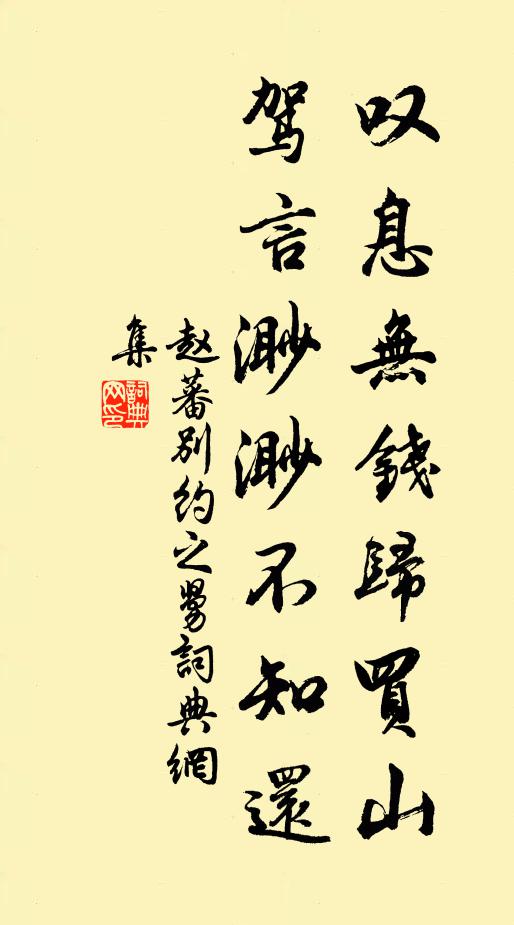 叹息無錢歸買山
駕言渺渺不知還
赵蕃别約之舅詞典網
集
詞典
网印